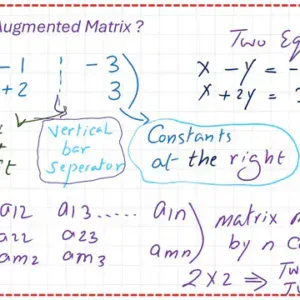 Augmented Matrix ?
Two Equ
-1 -3
x - y = -
+2 3
x + 2y =
Vertical
bar
Seperator
Constants
at the right
a12 a13 ..... a1n
matrix
a22 a23
by n c
am2 am3 amn
2 x 2 ⇒ Tw